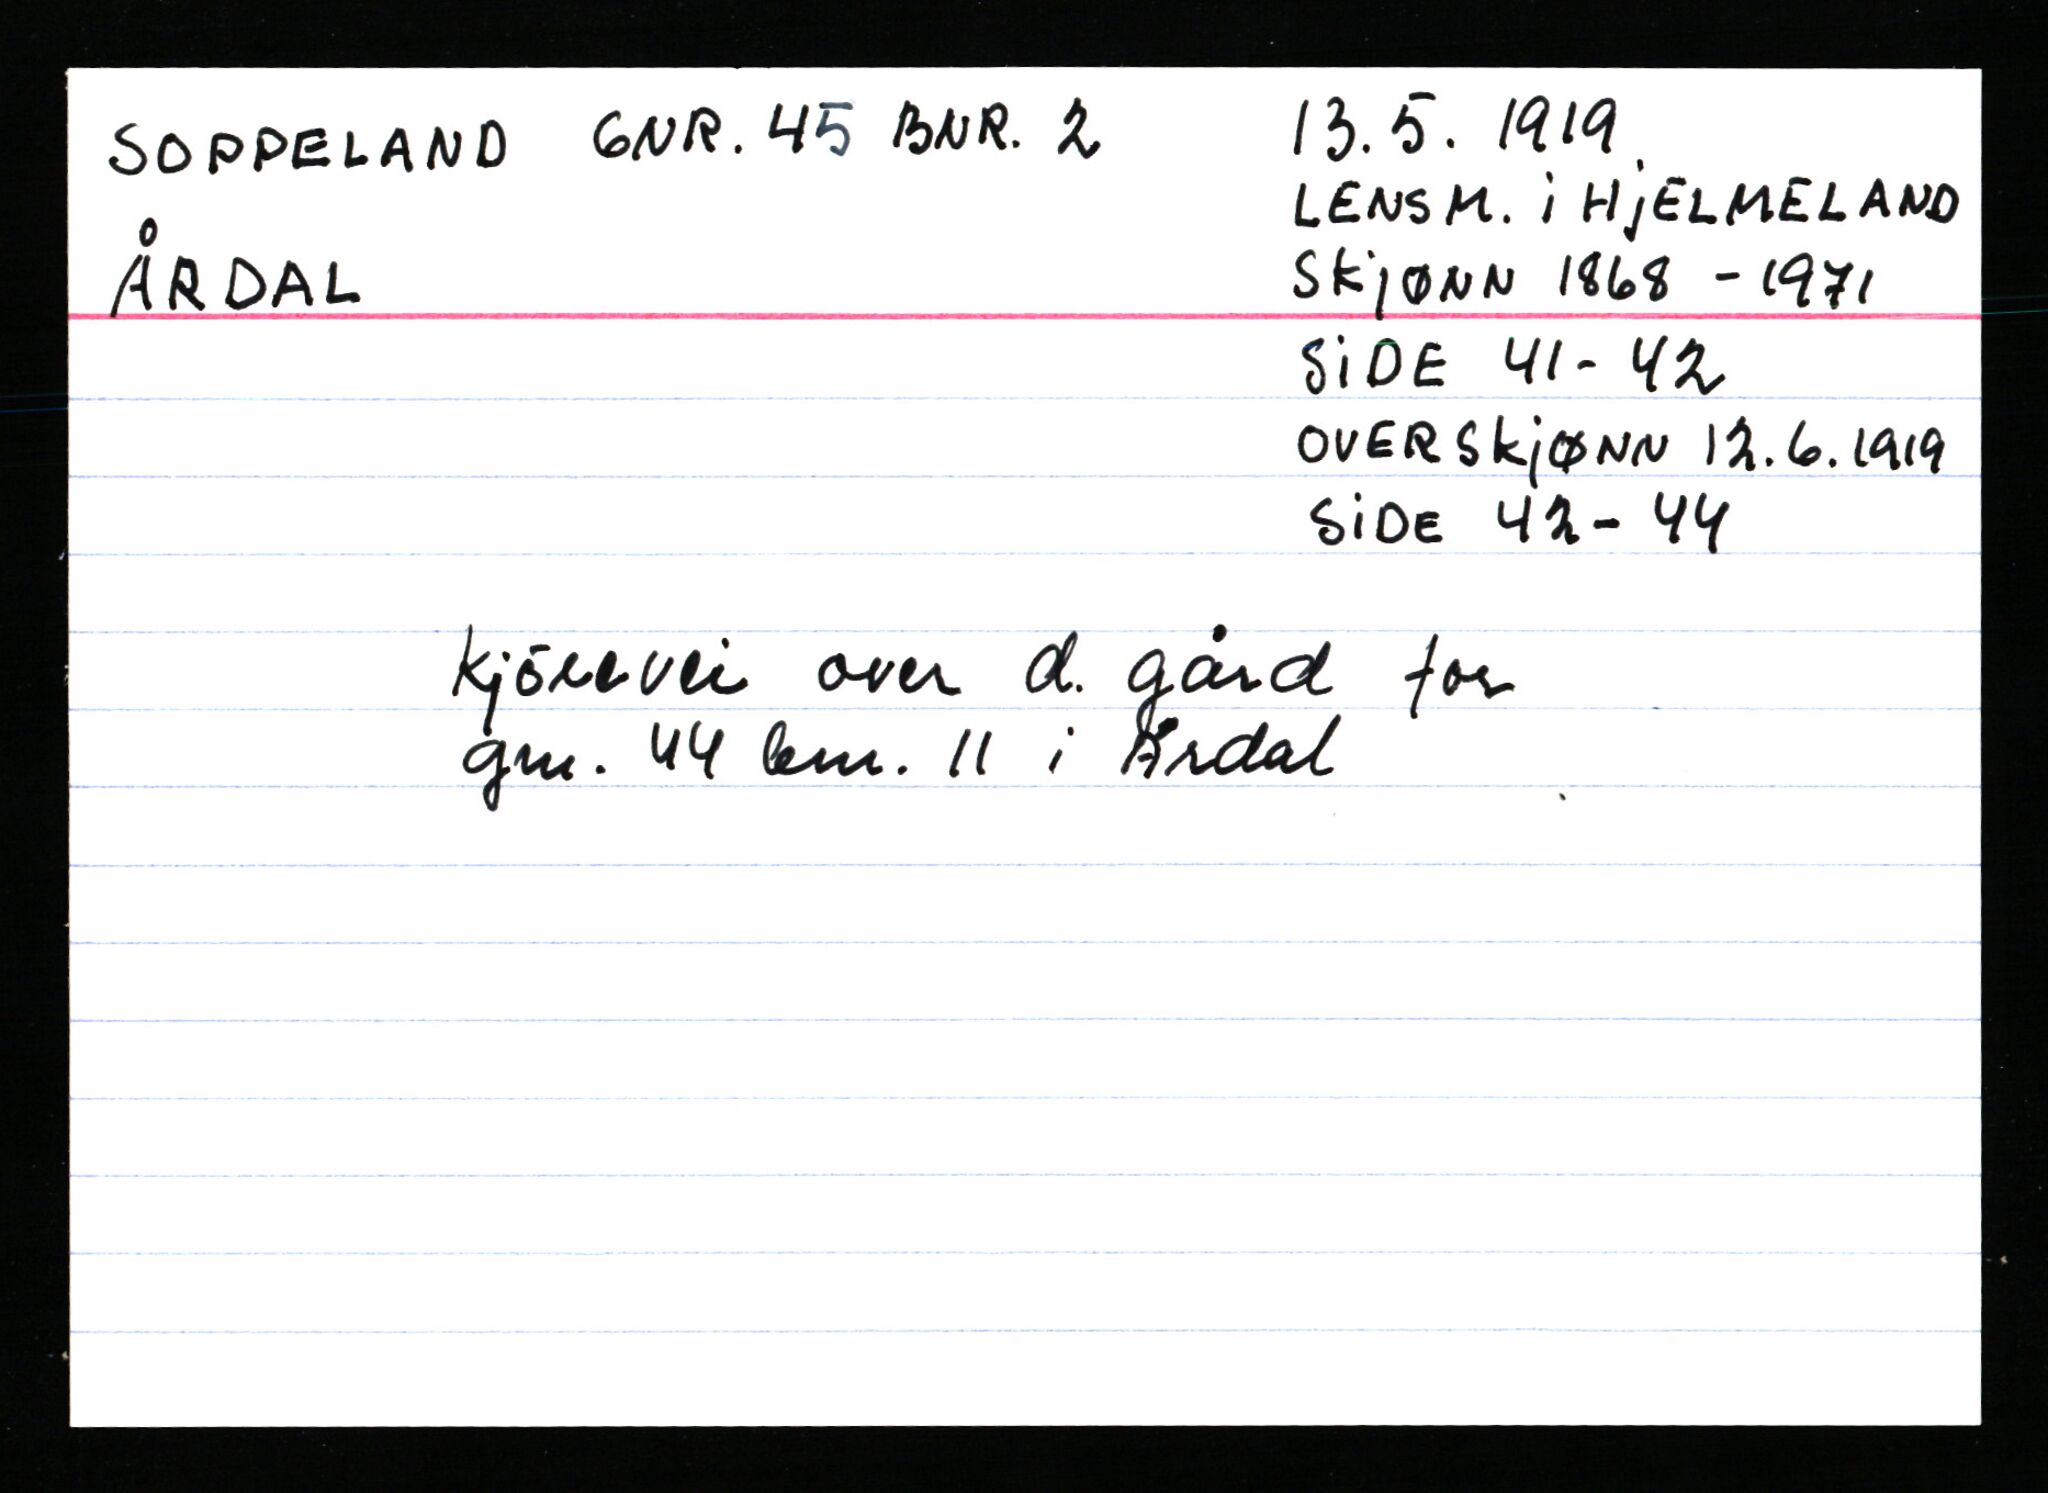 SOPPELAND GNR. 45 BNR. 2
ÅRDAL
13.5.1919
LENSM. i HjELMELAND
SKjØNN 1868 - 1971
SiDE 41 - 42
OVERSKjØNN 12.6.1919
SiDE 42 - 44
Kjörevei over d. gård for
gnr. 44 bnr. 11 i Årdal